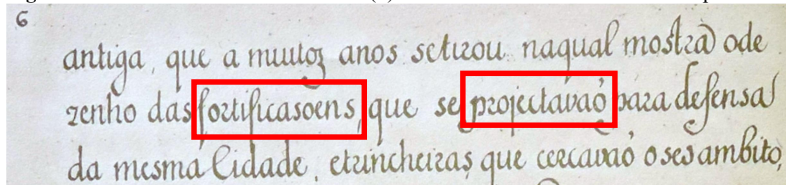 6
antiga, que a muitoz anos setirou naqual mostra ode
zenho das fortificasoens, que se projectavaõ para defensa
da mesma Cidade, etrincheiras que cercavaõ oseo ambito,